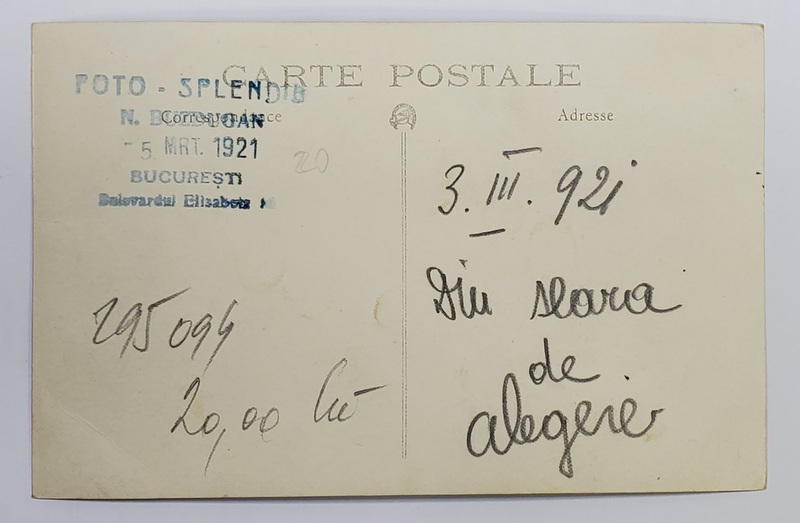 CARTE POSTALE
FOTO - SPLENDID
N. BUZDUGAN
Correspondance
- 5 MRT. 1921
BUCUREȘTI
Bulevardul Elisabeta
20
Adresse
3. III. 921
Din seara
de
alegeri
295094
20,00 Lei